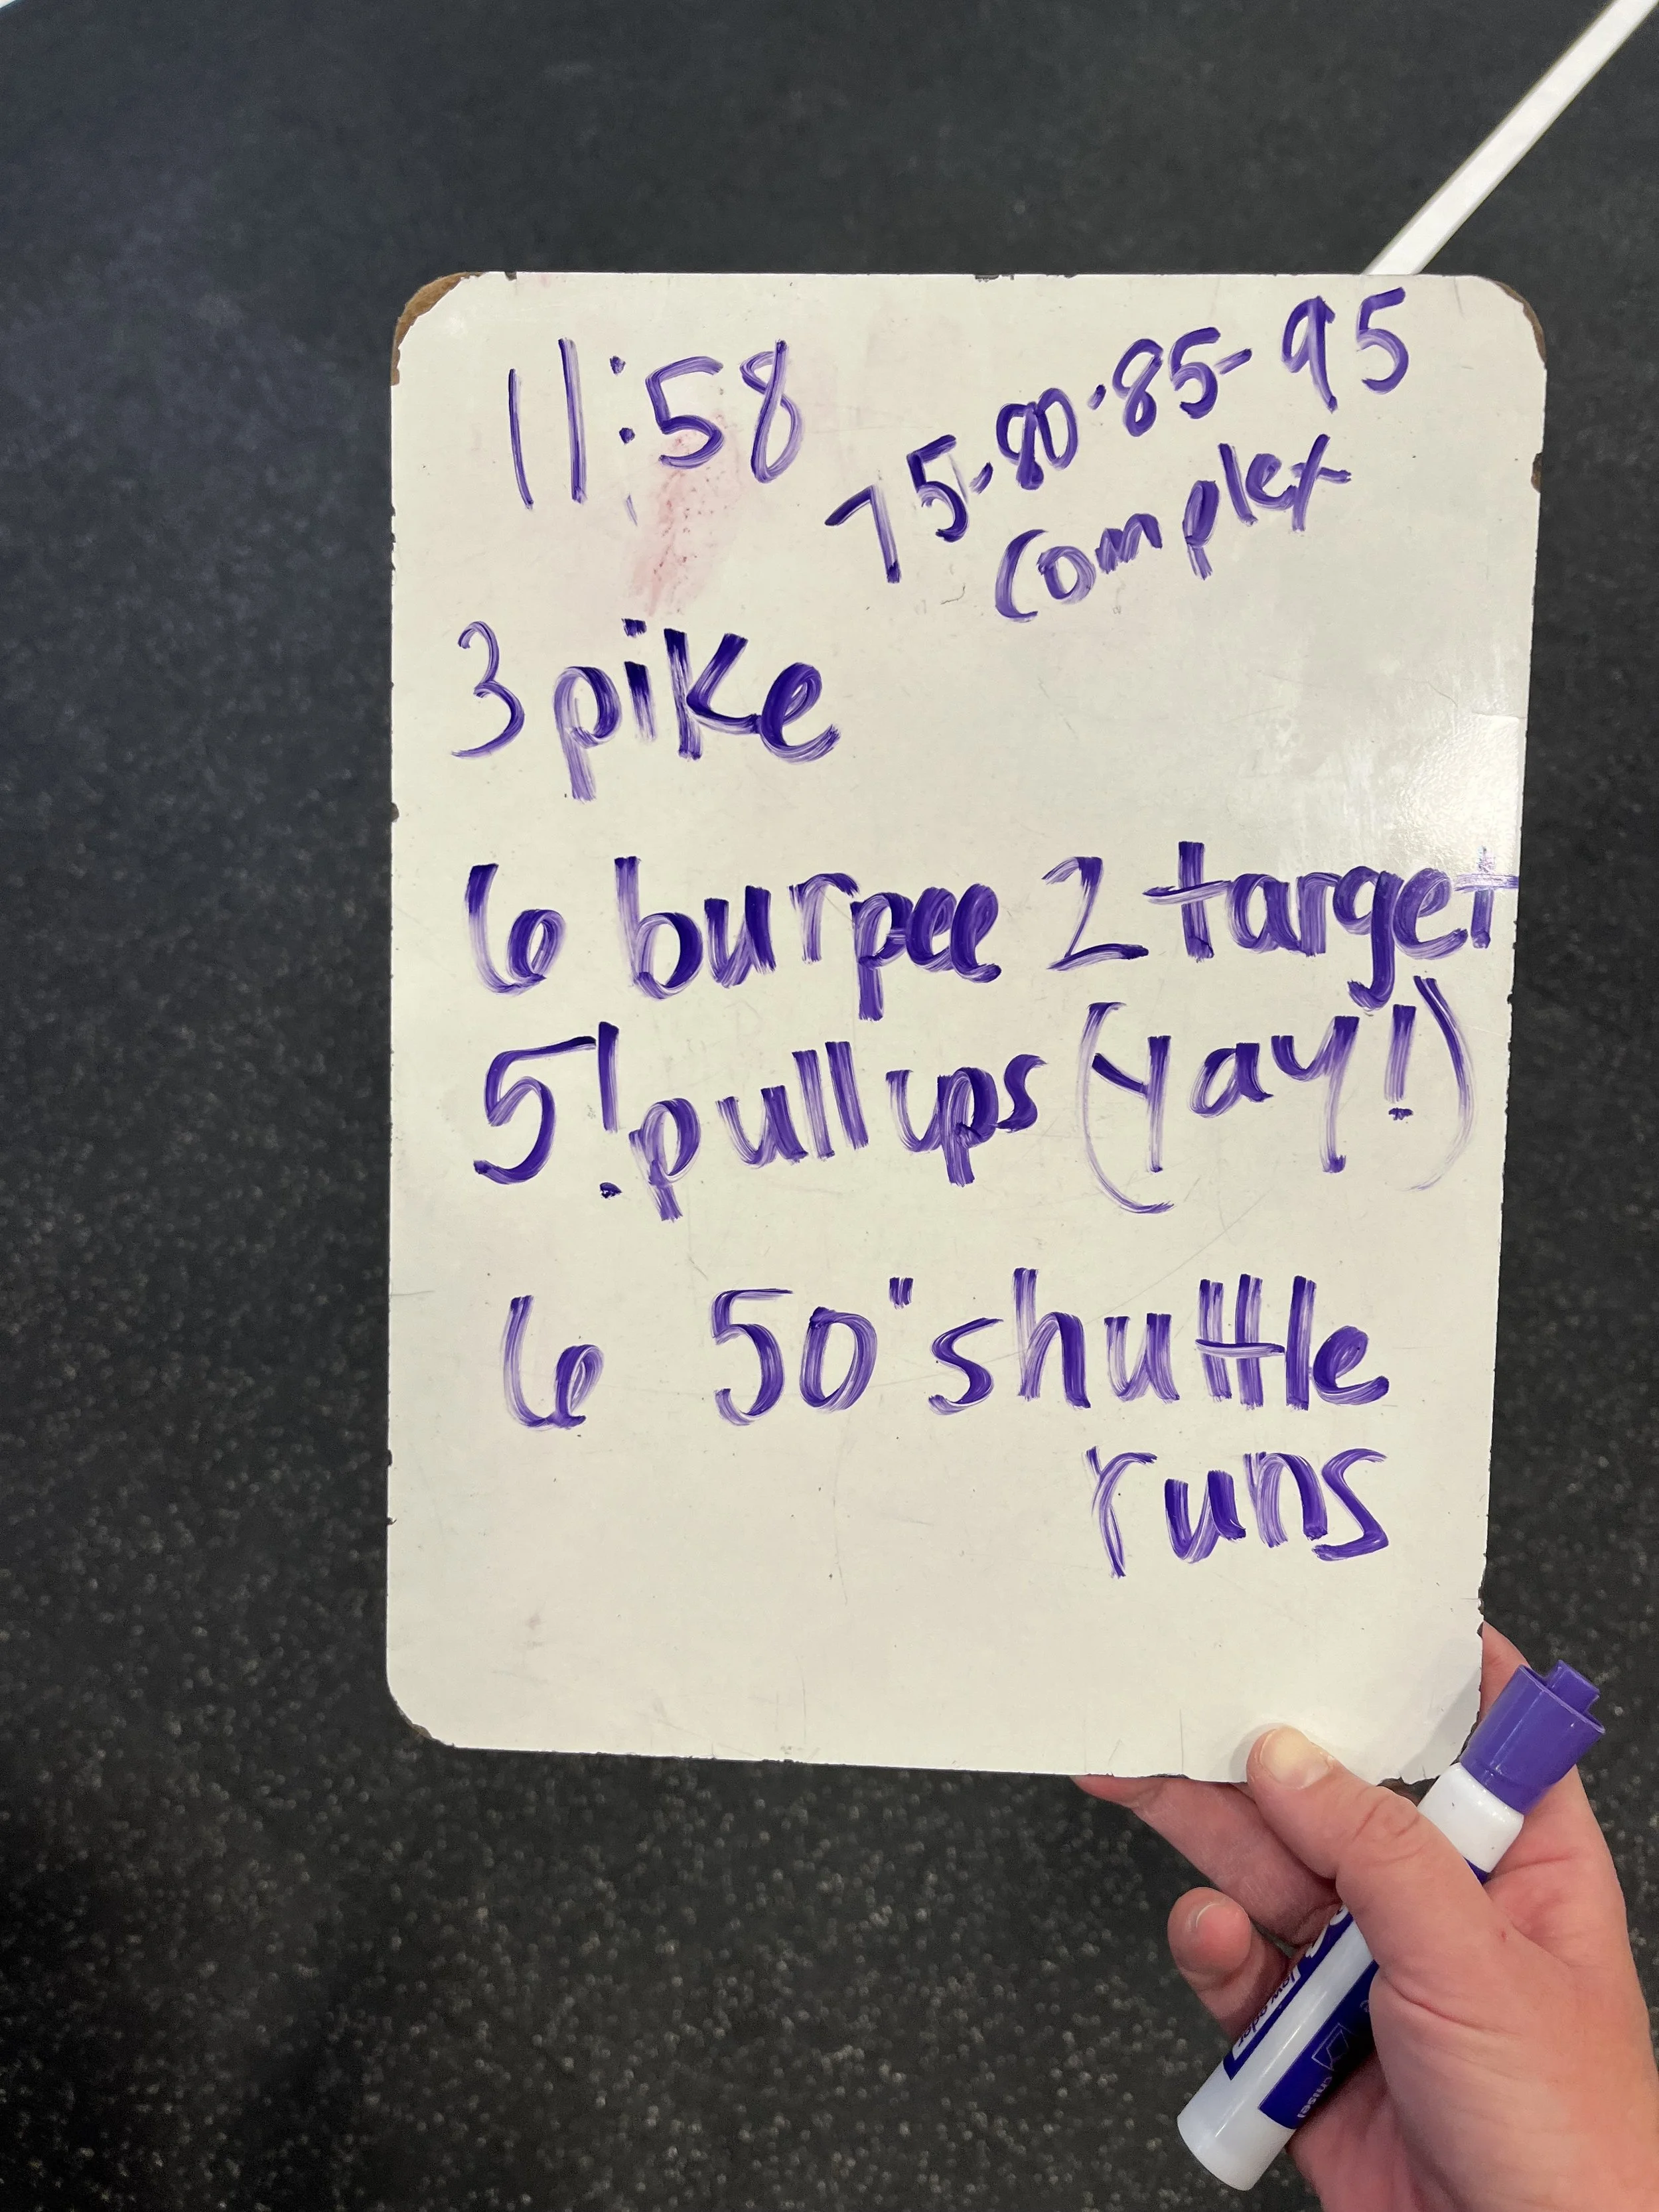 11:58
75-80-85-95
complex
3 pike
6 burpee 2 target
5! pull ups (yay!)
6 50" shuttle
runs
low odor
chisel